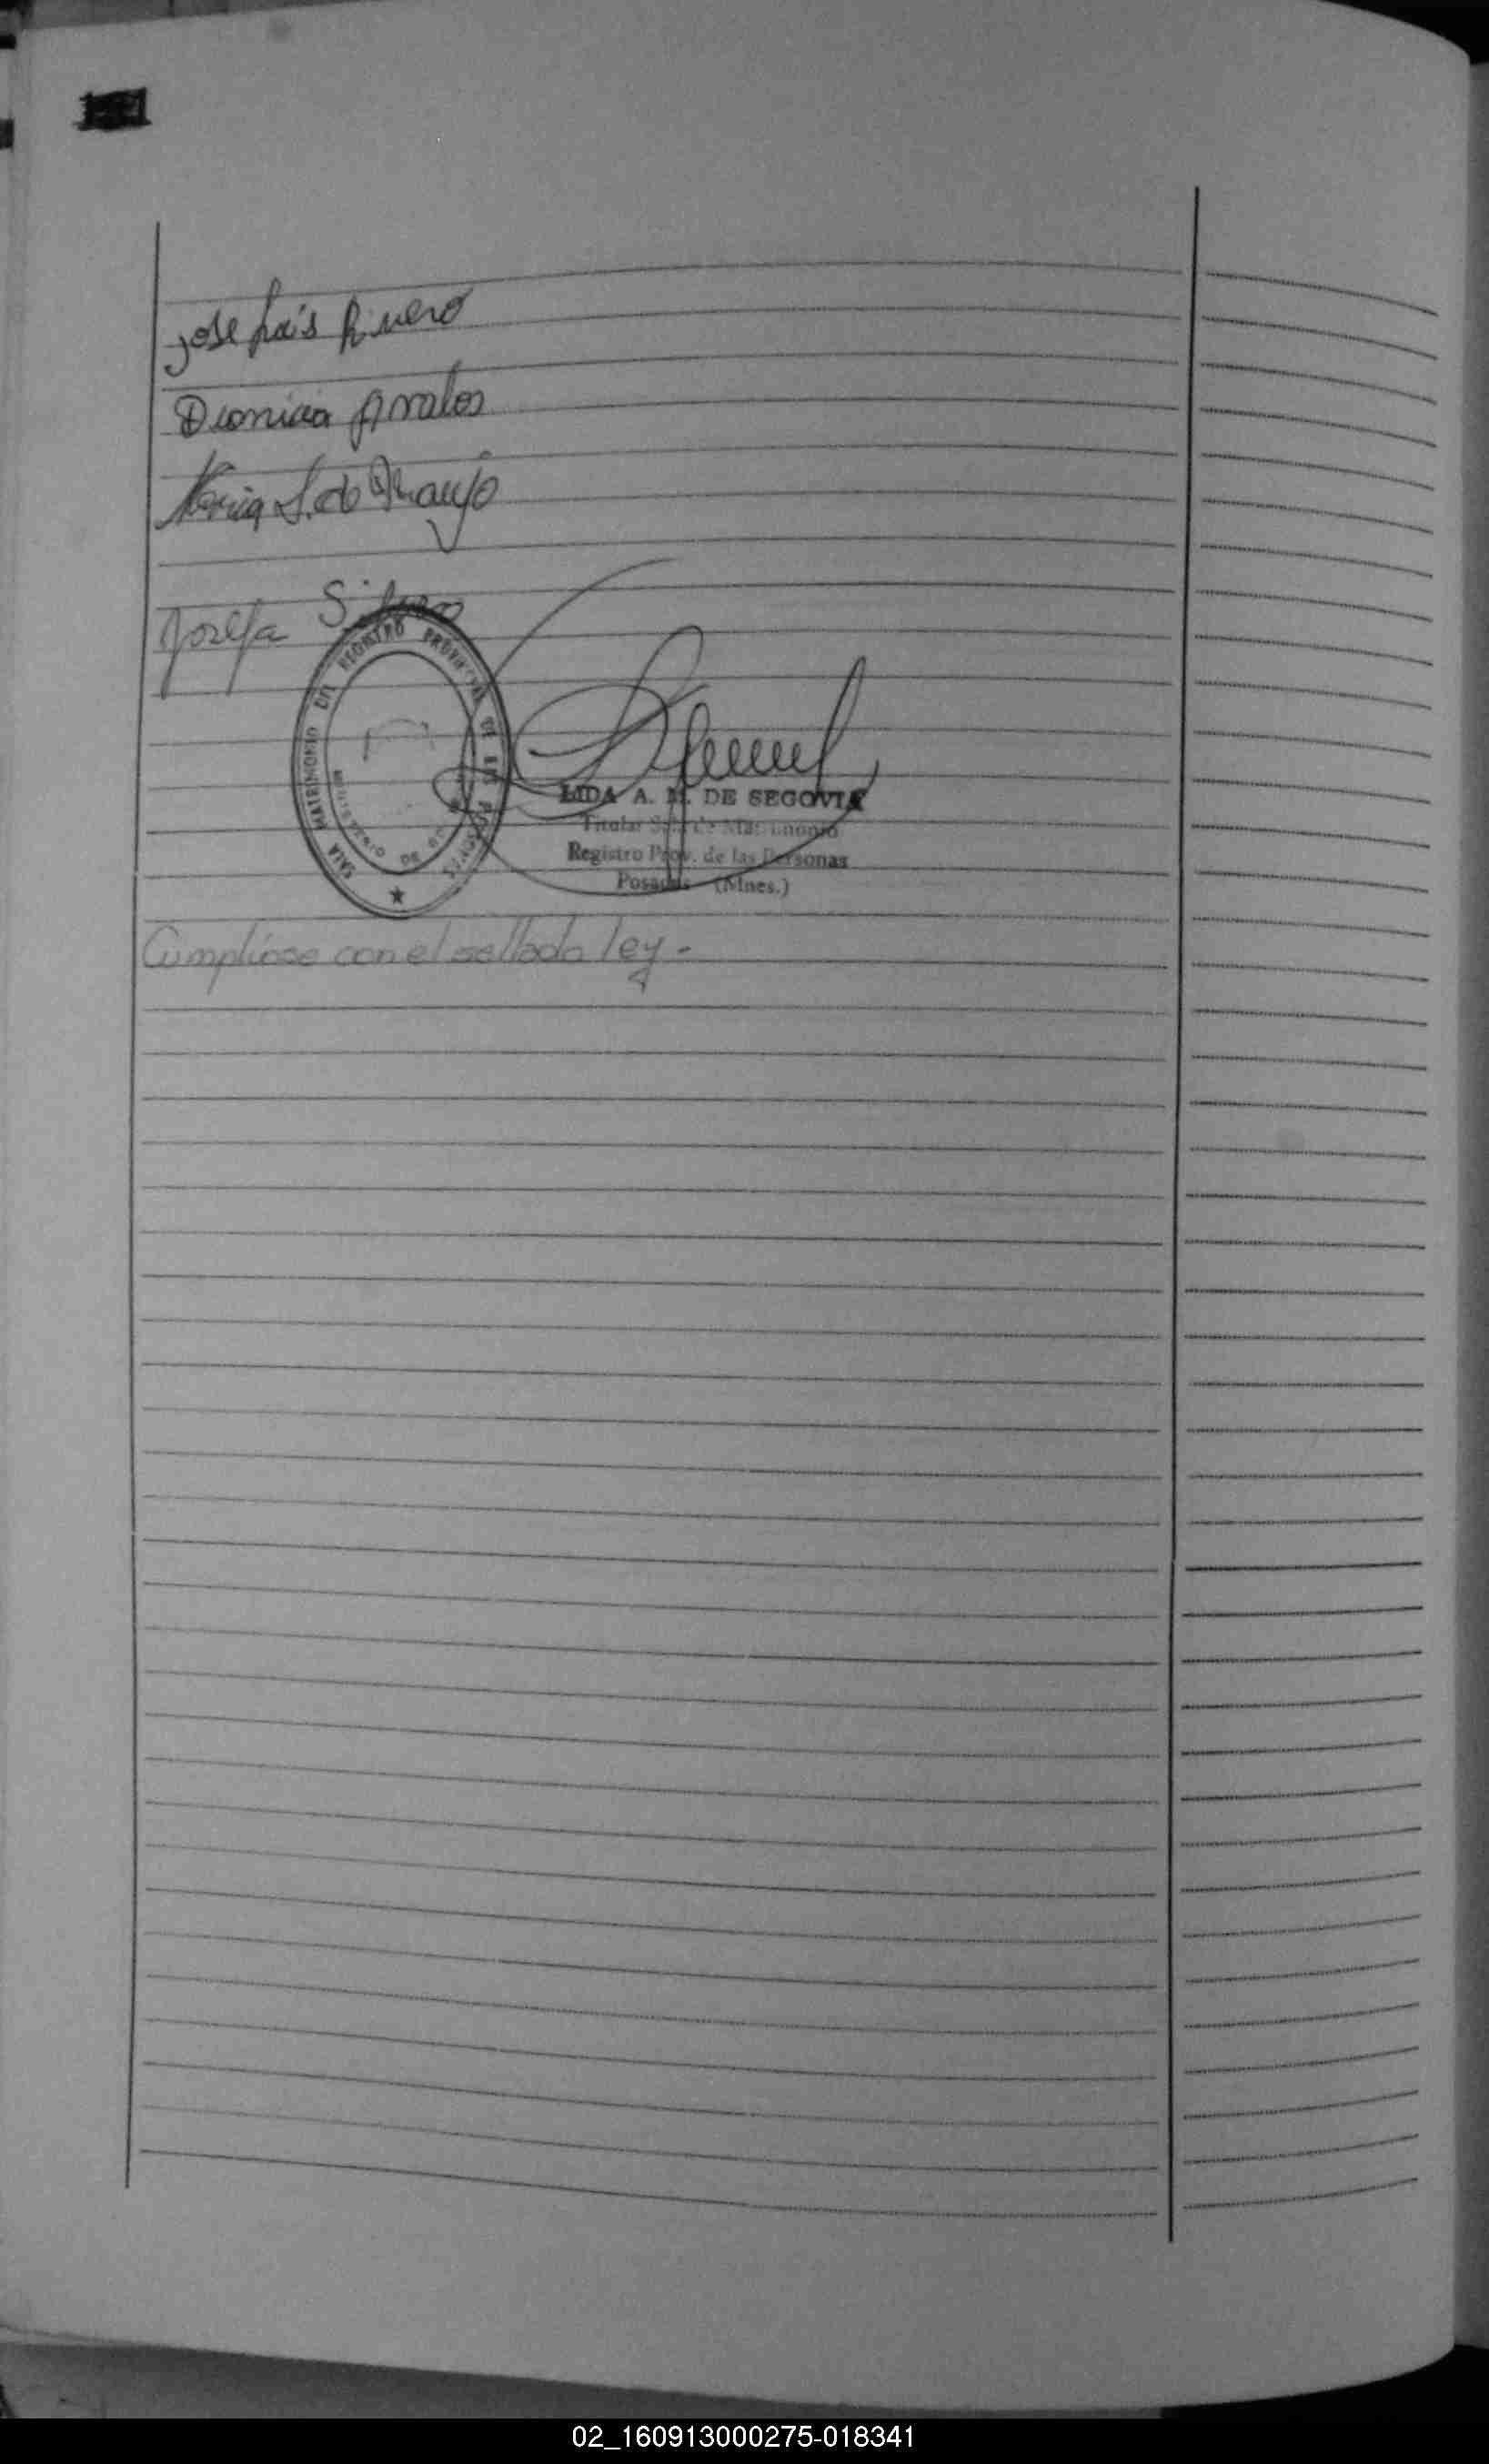 Jose Luis Rivero
Dionicia Avalos
Maria S. de Araujo
Josefa Silvero
SALA MATRIMONIO DEL REGISTRO PROVINCIAL DE LAS PERSONAS
MINISTERIO DE
LIDA A. M. DE SEGOVIA
Titular Sala de Matrimonio
Registro Prov. de las Personas
Posadas (Mnes.)
Cumplióse con el sellado ley.-
02_160913000275-018341